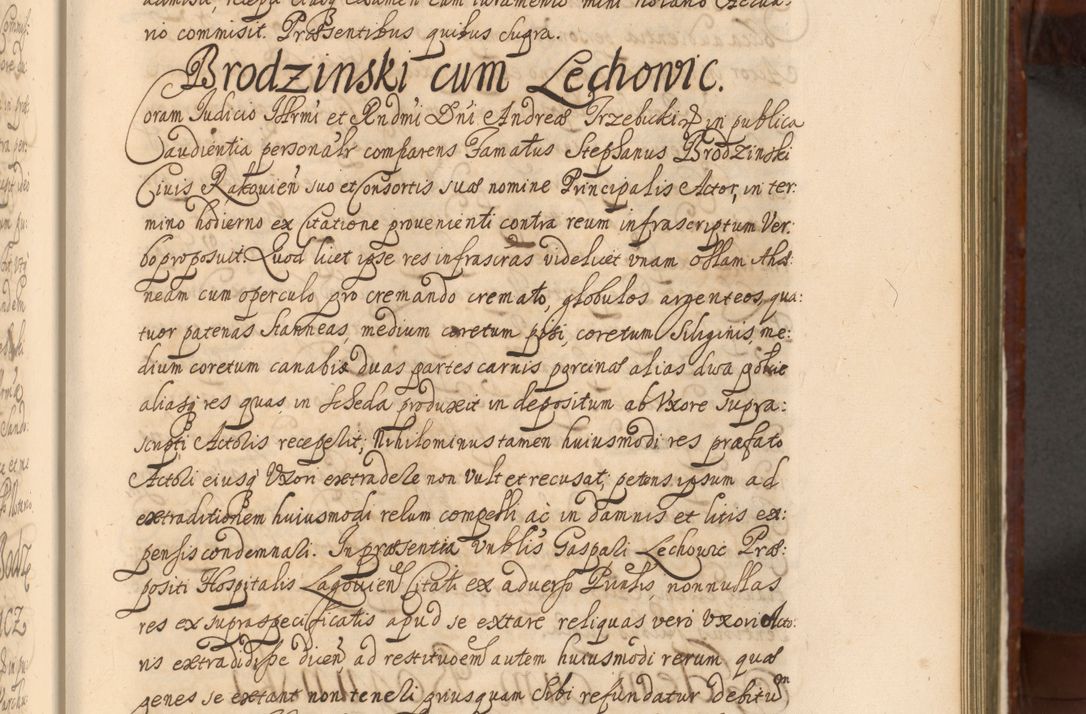 rio commisit. Præsentibus quibus supra.
Brodzinski cum Lechowic.
Coram Judicio Illrmi et Rndmi Dni Andreæ Trzebicki in publica
audientia personalr comparens Famatus Stephanus Brodzinski
Civis Rakovien suo et Consortis suæ nomine Principalis Actor, in ter:
mino hodierno ex Citatione provenienti contra reum infrascriptum Ver:
bo proposuit. Quod licet ipse res infrascras videlicet vnam ollam Ahæ:
neam cum operculo pro cremando cremato, globulos argenteos, qua:
tuor patenas stanneas, medium coretum pisi, coretum Siliginis, me:
dium coretum canabis duas partes carnis porcinæ alias dwa połcie
aliasq res quas in scheda produxit in depositum ab Vxore supra:
scripti Actoris receperit; Nihilominus tamen huiusmodi res præfato
Actori eiusq Vxori extradere non vult et recusat, petens ipsum ad
extraditionem huiusmodi rerum compelli ac in damnis et litis ex:
pensis condemnari. In præsentia Vnblis Gaspari Lechowic Præ:
positi Hospitalis Lagovien Citati ex adverso Principalis, nonnullas
res ex supraspecificatis apud se extare reliquas vero Vxori Acto:
ris extradidisse dicen ad restituoem autem huiusmodi rerum quæ
penes se extant non teneri priusquam sibi refundatur debitum